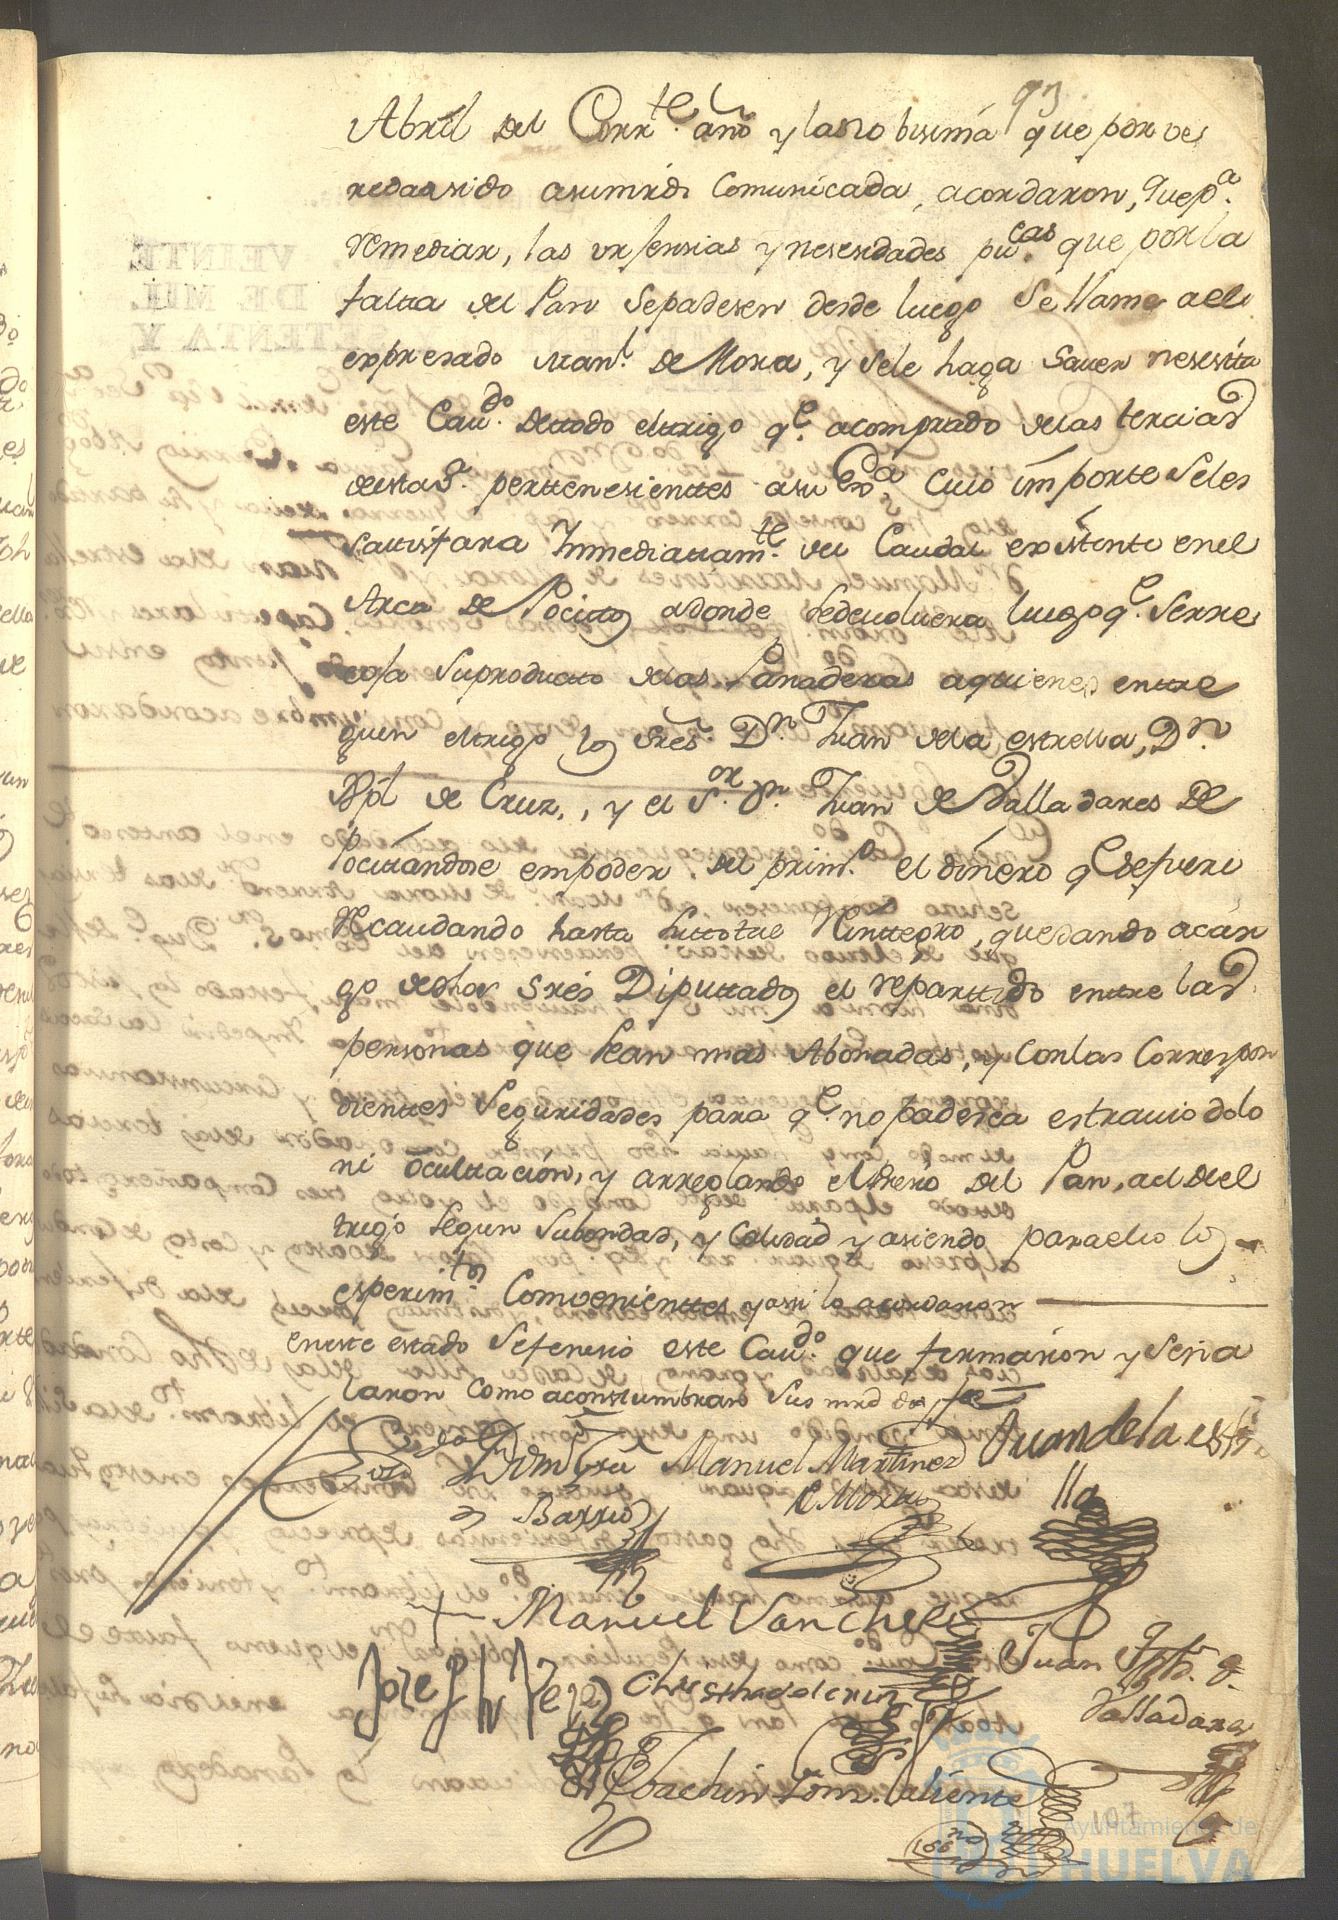 93
Abril del Corrte. año y la
que por
acordaron, que pa.
remediar, las urgensias y nesesidades pucas. que por la
falta del Pan Se padesen desde luego Se llame a el
expresado Manl. de Mora, y Sele haga Saver nesesita
este Cavdo. de todo el trigo qe. a comprado de las tercias
de esta pertenesientes a su Exa. cuio importe Seles
Sattisfara Inmediattamte. del Caudal existente en el
Arca de Pocitto adonde Sedevolvera luego qe. Serre
coja Suproducto de las Panaderas a quienes entre
guen el trigo los Sres. Dn. Juan de la estrella, Dn.
de Cruz, y el Sor. Dn. Juan de Valladares De
pocitandose em poder del primo. el dinero qe se fuere
Recaudando hasta Su total Reinttegro, quedando a car
go de dhos Sres Diputtados el reparttido entre las
personas que Sean mas Abonadas, y Con las Correspon
dientes Seguridades para qe. no padesca estravio dolo
ni ocultacion, y arreglando el presio del Pan, al del
trigo Segun Su bondad, y Calidad y asiendo para ello los
esperimtos. Combenienttes y asi lo acordaron
en este estado Se fenesio este Cavdo. que firmaron y Seña
laron Como acostumbraro Sus mrds doi fee
Manuel Martinez Juan de la estre
Barrio de Mora lla
Manuel Sanchez
Joseph Perez Juan
Valladares
Joachin Gonz. Valiente
Ayuntamiento de
HUELVA